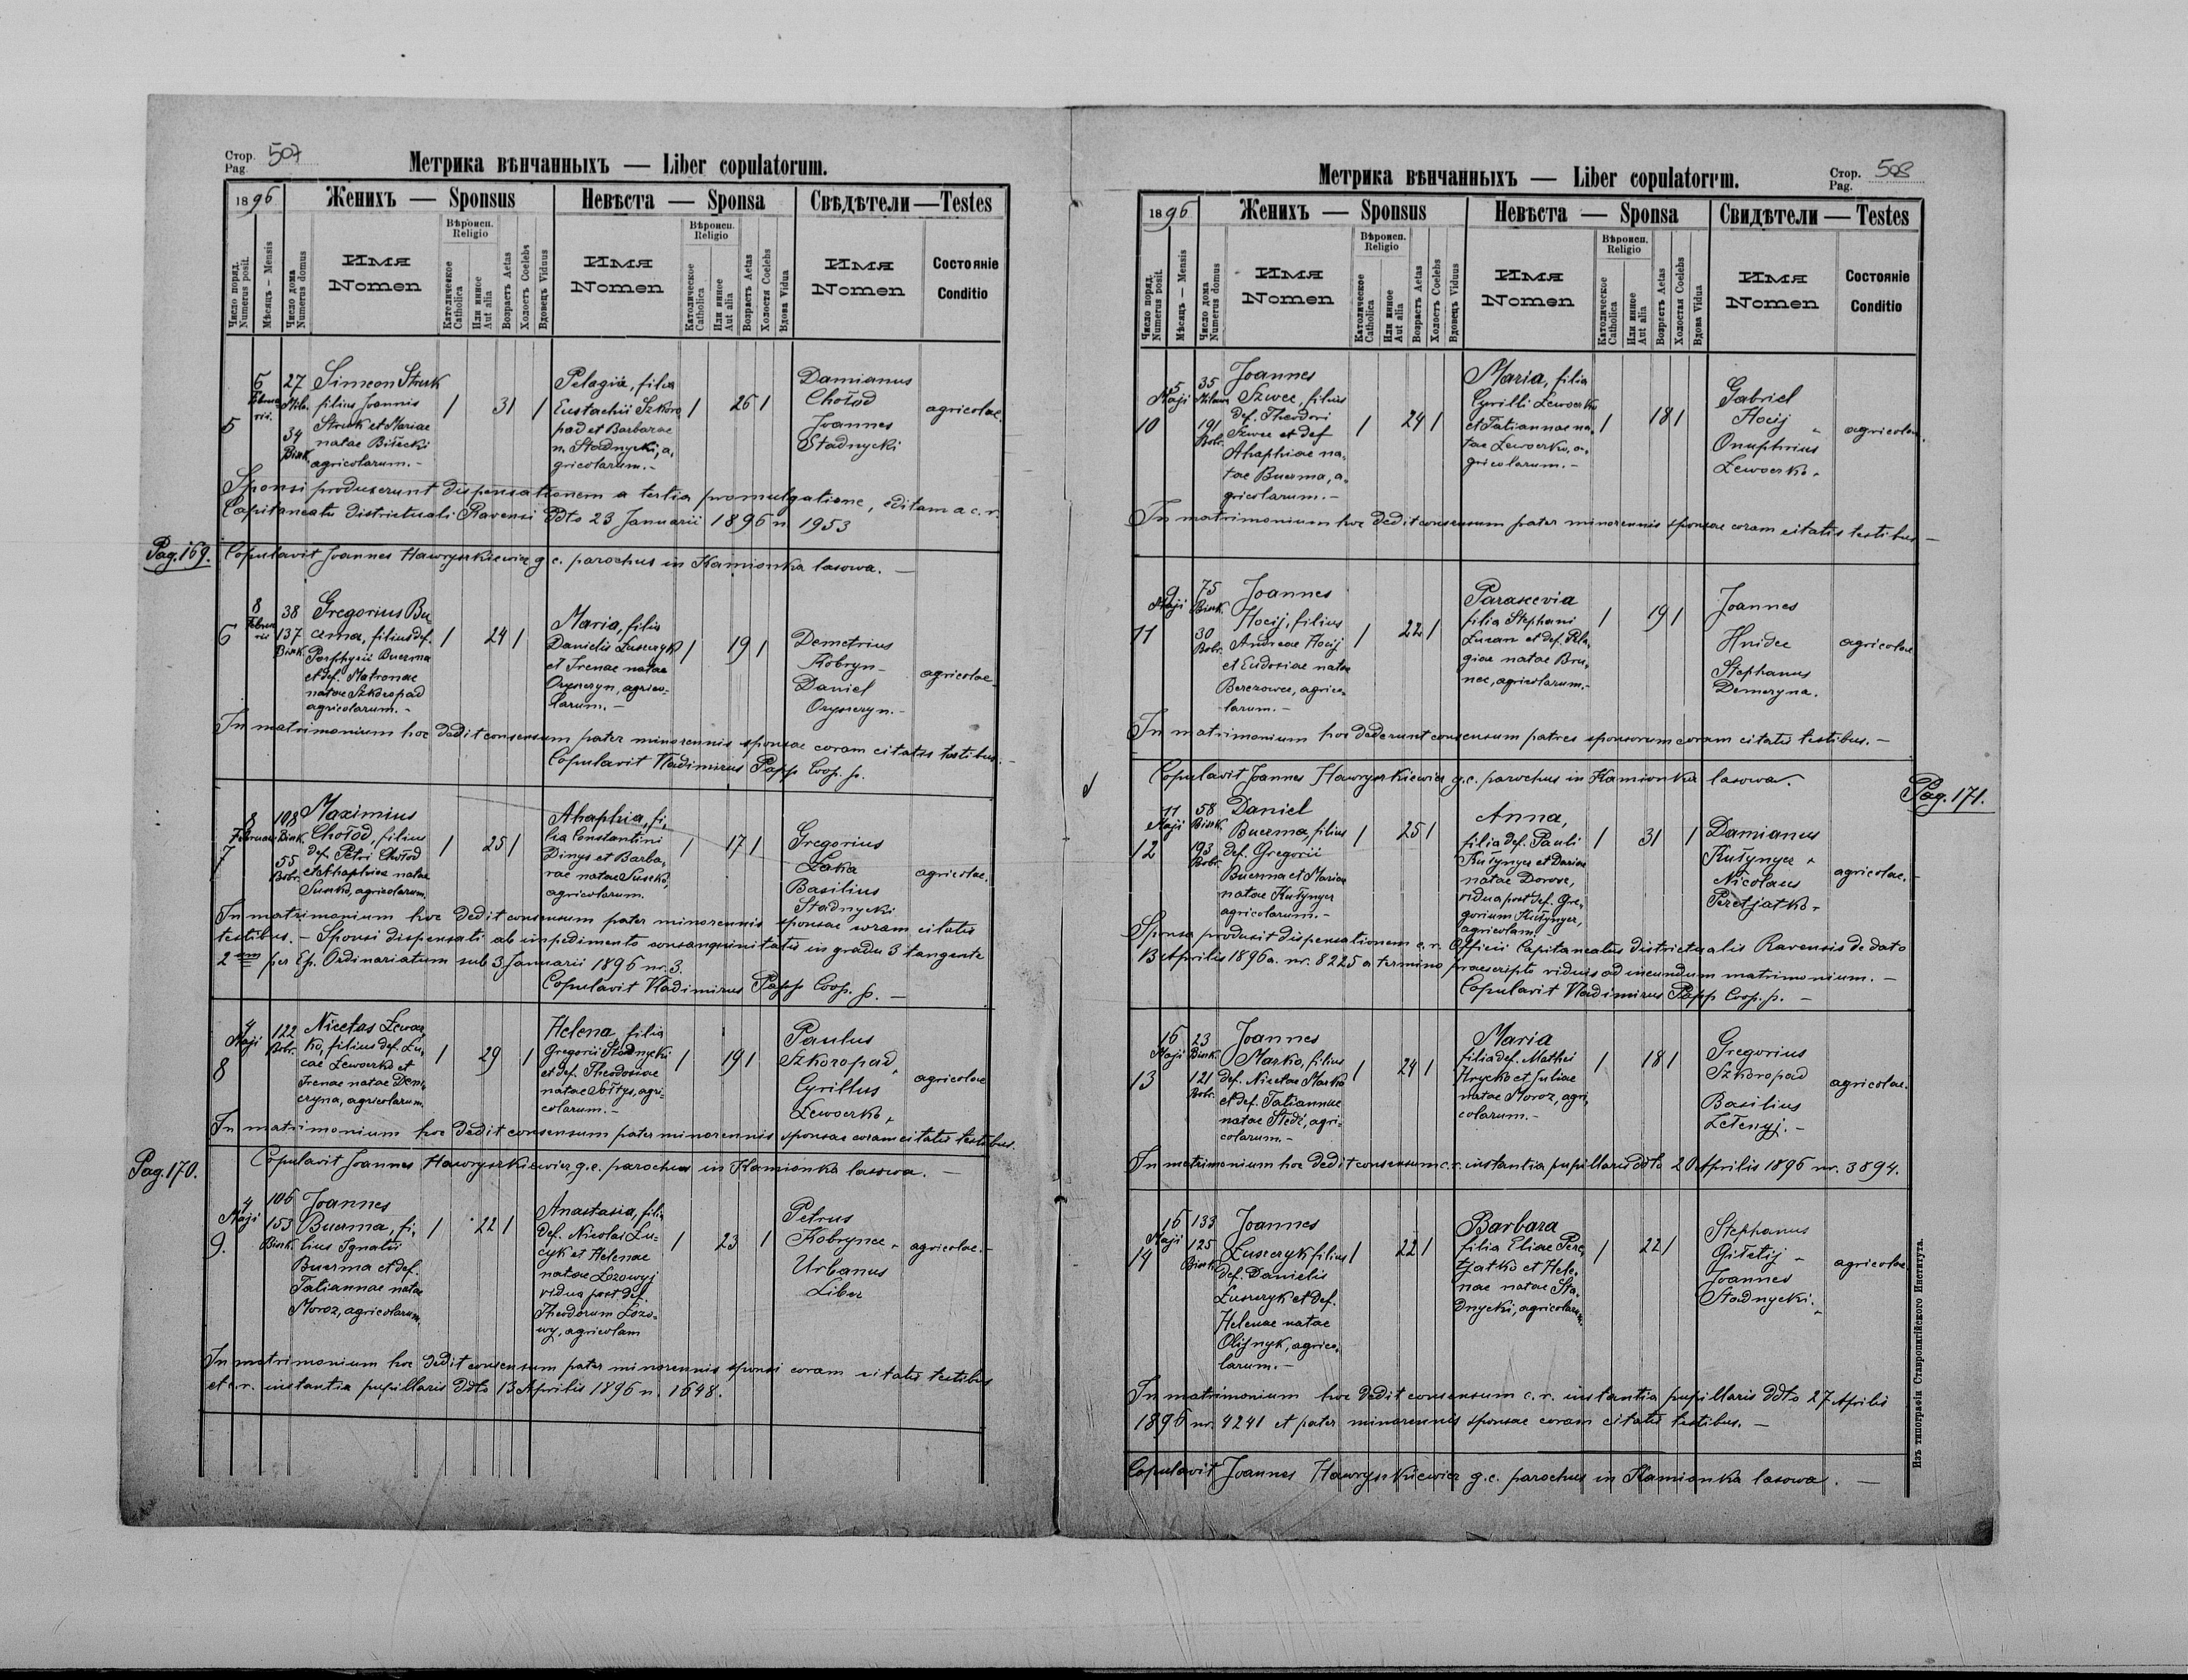 Стор. 507
Pag.
Метрика вѣнчанныхъ — Liber copulatorum.
1896
Женихъ — Sponsus
Невѣста — Sponsa
Свѣдѣтели — Testes
Число поряд. Numerus posit.
Мѣсяцъ — Mensis
Число дома Numerus domus
Имя Nomen
Вѣроисп. Religio
Католическое Catholica
Или инное Aut alia
Возрастъ Aetas
Холостъ Coelebs
Вдовецъ Viduus
Имя Nomen
Вѣроисп. Religio
Католическое Catholica
Или инное Aut alia
Возрастъ Aetas
Холостя Coelebs
Вдова Vidua
Имя Nomen
Состояніе Conditio
5
6 Februa ris.
27
34 Bisk.
Simeon Struk
filius Joannis
Struk et Mariae
natae Bilecki
agricolarum.-
1 31 1
Pelagia, filia
Eustachii Szkoro
pad et Barbarae
n. Stadnycki, a,
gricolarum.-
1 26 1
Damianus
Chołod
Joannes
Stadnycki
agricolae.
Sponsi produxerunt dispensationem a tertia promulgatione, editam a c. r.
Capitaneatu districtuali Ravensi ddto 23 Januarii 1896 n. 1953
Pag. 169.
Copulavit Joannes Hawryszkiewicz g. c. parochus in Kamionka lasowa. —
6
8 Februa ris
38
137 Bisk.
Gregorius Bu
czma, filius def.
Porphyrii Buczma
et def. Matronae
natae Szkoropad
agricolarum.-
1 24 1
Maria, filia
Danielis Łuszczyk
et Irenae natae
Oryszczyn, agrico-
larum.-
1 19 1
Demetrius
Kobryn-
Daniel
Oryszczyn.-
agricolae.
In matrimonium hoc dedit consensum pater minorennis sponsae coram citatis testibus.-
Copulavit Vladimirus Papp Coop. p.
7
8 Februarii
108 Bisk.
55 Bobr.
Maximius
Chołod, filius
def. Petri Chołod
et Ahaphiae natae
Suszko, agricolarum.
1 25 1
Ahaphia, fi,
lia Constantini
Dinys et Barba,
rae natae Suszko,
agricolarum.
1 17 1
Gregorius
Łaka
Basilius
Stadnycki
agricolae.
In matrimonium hoc dedit consensum pater minorennis sponsae coram citatis
testibus.- Sponsi dispensati ab impedimento consanguinitatis in gradu 3 tangente
2em per Ep. Ordinariatum sub 3 Januarii 1896 nr. 3.
Copulavit Vladimirus Papp Coop. p. —
8
4 Maji
122 Bobr.
Nicetas Lewocz,
ko, filius def. Lu,
cae Lewoczko et
Irenae natae Dem,
czyna, agricolarum.
1 29 1
Helena, filia
Gregorii Stadnycki
et def. Theodosiae
natae Sołtys, agri-
colarum.-
1 19 1
Paulus
Szkoropad,
Cyrillus
Lewoczko,
agricolae
In matrimonium hoc dedit consensum pater minorennis sponsae coram citatis testibus.
Pag. 170.
Copulavit Joannes Hawryszkiewicz g. c. parochus in Kamionka lasowa. —
9.
4 Maji
106
153 Bisk.
Joannes
Buczma, fi,
lius Ignatii
Buczma et def.
Tatiannae natae
Moroz, agricolarum,
1 22 1
Anastasia, filia
def. Nicolai Łu-
cyk et Helenae
natae Łozowyj
vidua post def.
Theodorum Łozo-
wy, agricolam
1 23 1
Petrus
Kobrynec,
Urbanus
Liber
agricolae.-
In matrimonium hoc dedit consensum pater minorennis sponsi coram citatis testibus
et c. r. instantia pupillaris ddto 13 Aprilis 1896 n. 1648.
Стор. 508
Pag.
Метрика вѣнчанныхъ — Liber copulatorum.
1896
Женихъ — Sponsus
Невѣста — Sponsa
Свидѣтели — Testes
Число поряд. Numerus posit.
Мѣсяцъ — Mensis
Число дома Numerus domus
Имя Nomen
Вѣроисп. Religio
Католическое Catholica
Или инное Aut alia
Возрастъ Aetas
Холостъ Coelebs
Вдовецъ Viduus
Имя Nomen
Вѣроисп. Religio
Католическое Catholica
Или инное Aut alia
Возрастъ Aetas
Холостая Coelebs
Вдова Vidua
Имя Nomen
Состояніе Conditio
10
5 Maji
35
191 Bobr.
Joannes
Szwec, filius
def. Theodori
Szwec et def
Ahaphiae na,
tae Buczma, a,
gricolarum.-
1 24 1
Maria, filia
Cyrilli Lewoczko
et Tatiannae na,
tae Lewoczko, a,
gricolarum.-
1 18 1
Gabriel
Hocij
Onuphrius
Lewoczko.
agricolae.
In matrimonium hoc dedit consensum pater minorennis sponsae coram citatis testibus —
11
9 Maji
75 Bisk.
30 Bobr.
Joannes
Hocij, filius
Andreae Hocij
et Eudosiae natae
Berezowec, agrico,
larum.-
1 22 1
Parascevia
filia Stephani
et def. Pela,
giae natae Bru,
nec, agricolarum,-
1 19 1
Joannes
Hnidec
Stephanus
Demczyna.
agricolae
In matrimonium hoc dederunt consensum patres sponsorum coram citatis testibus.-
Copulavit Joannes Hawryszkiewicz g. c. parochus in Kamionka lasowa.
Pag. 171.
12
11 Maji
58 Bisk.
193 Bobr.
Daniel
Buczma, filius
def. Gregorii
Buczma et Mariae
natae Kułynycz
agricolarum.-
1 25 1
Anna,
filia def. Pauli
Kułynycz et Dariae
natae Dorosz,
vidua post def. Gre,
gorium Kułynycz,
agricolam.-
1 31 1
Damianus
Kułynycz,
Nicolaus
Peretjatko.
agricolae.
Sponsa produxit dispensationem c. r. Officii Capitaneatus districtualis Ravensis de dato
13 Aprilis 1896 a. nr. 8225 a termino praescripto viduis ad ineundum matrimonium. —
Copulavit Vladimirus Papp Coop. p. —
13
16 Maji
23 Bisk.
121 Bobr.
Joannes
Marko, filius
def. Nicetae Marko
et def. Tatiannae
natae Stedź, agri-
colarum.-
1 24 1
Maria
filia def. Mathei
Hrycko et Juliae
natae Moroz, agri,
colarum.-
1 18 1
Gregorius
Szkoropad
Basilius
Zełenyj.-
agricolae.
In matrimonium hoc dedit consensum c. r. instantia pupillaris ddto 20 Aprilis 1896 nr. 3894.
14
16 Maji
133
125 Bisk.
Joannes
Łuszczyk filius
def. Danielis
Łuszczyk et def.
Helenae natae
Olijnyk, agrico,
larum.-
1 22 1
Barbara
filia Eliae Pere,
tjatko et Hele,
nae natae Sta,
dnycki, agricolarum.
1 22 1
Stephanus
Giłetij
Joannes
Stadnycki.
agricolae
In matrimonium hoc dedit consensum c. r. instantia pupillaris ddto 27 Aprilis
1896 nr. 4241 et pater minorennis sponsae coram citatis testibus. —
Copulavit Joannes Hawryszkiewicz g. c. parochus in Kamionka lasowa. —
Изъ типографіи Ставропигійского Института.